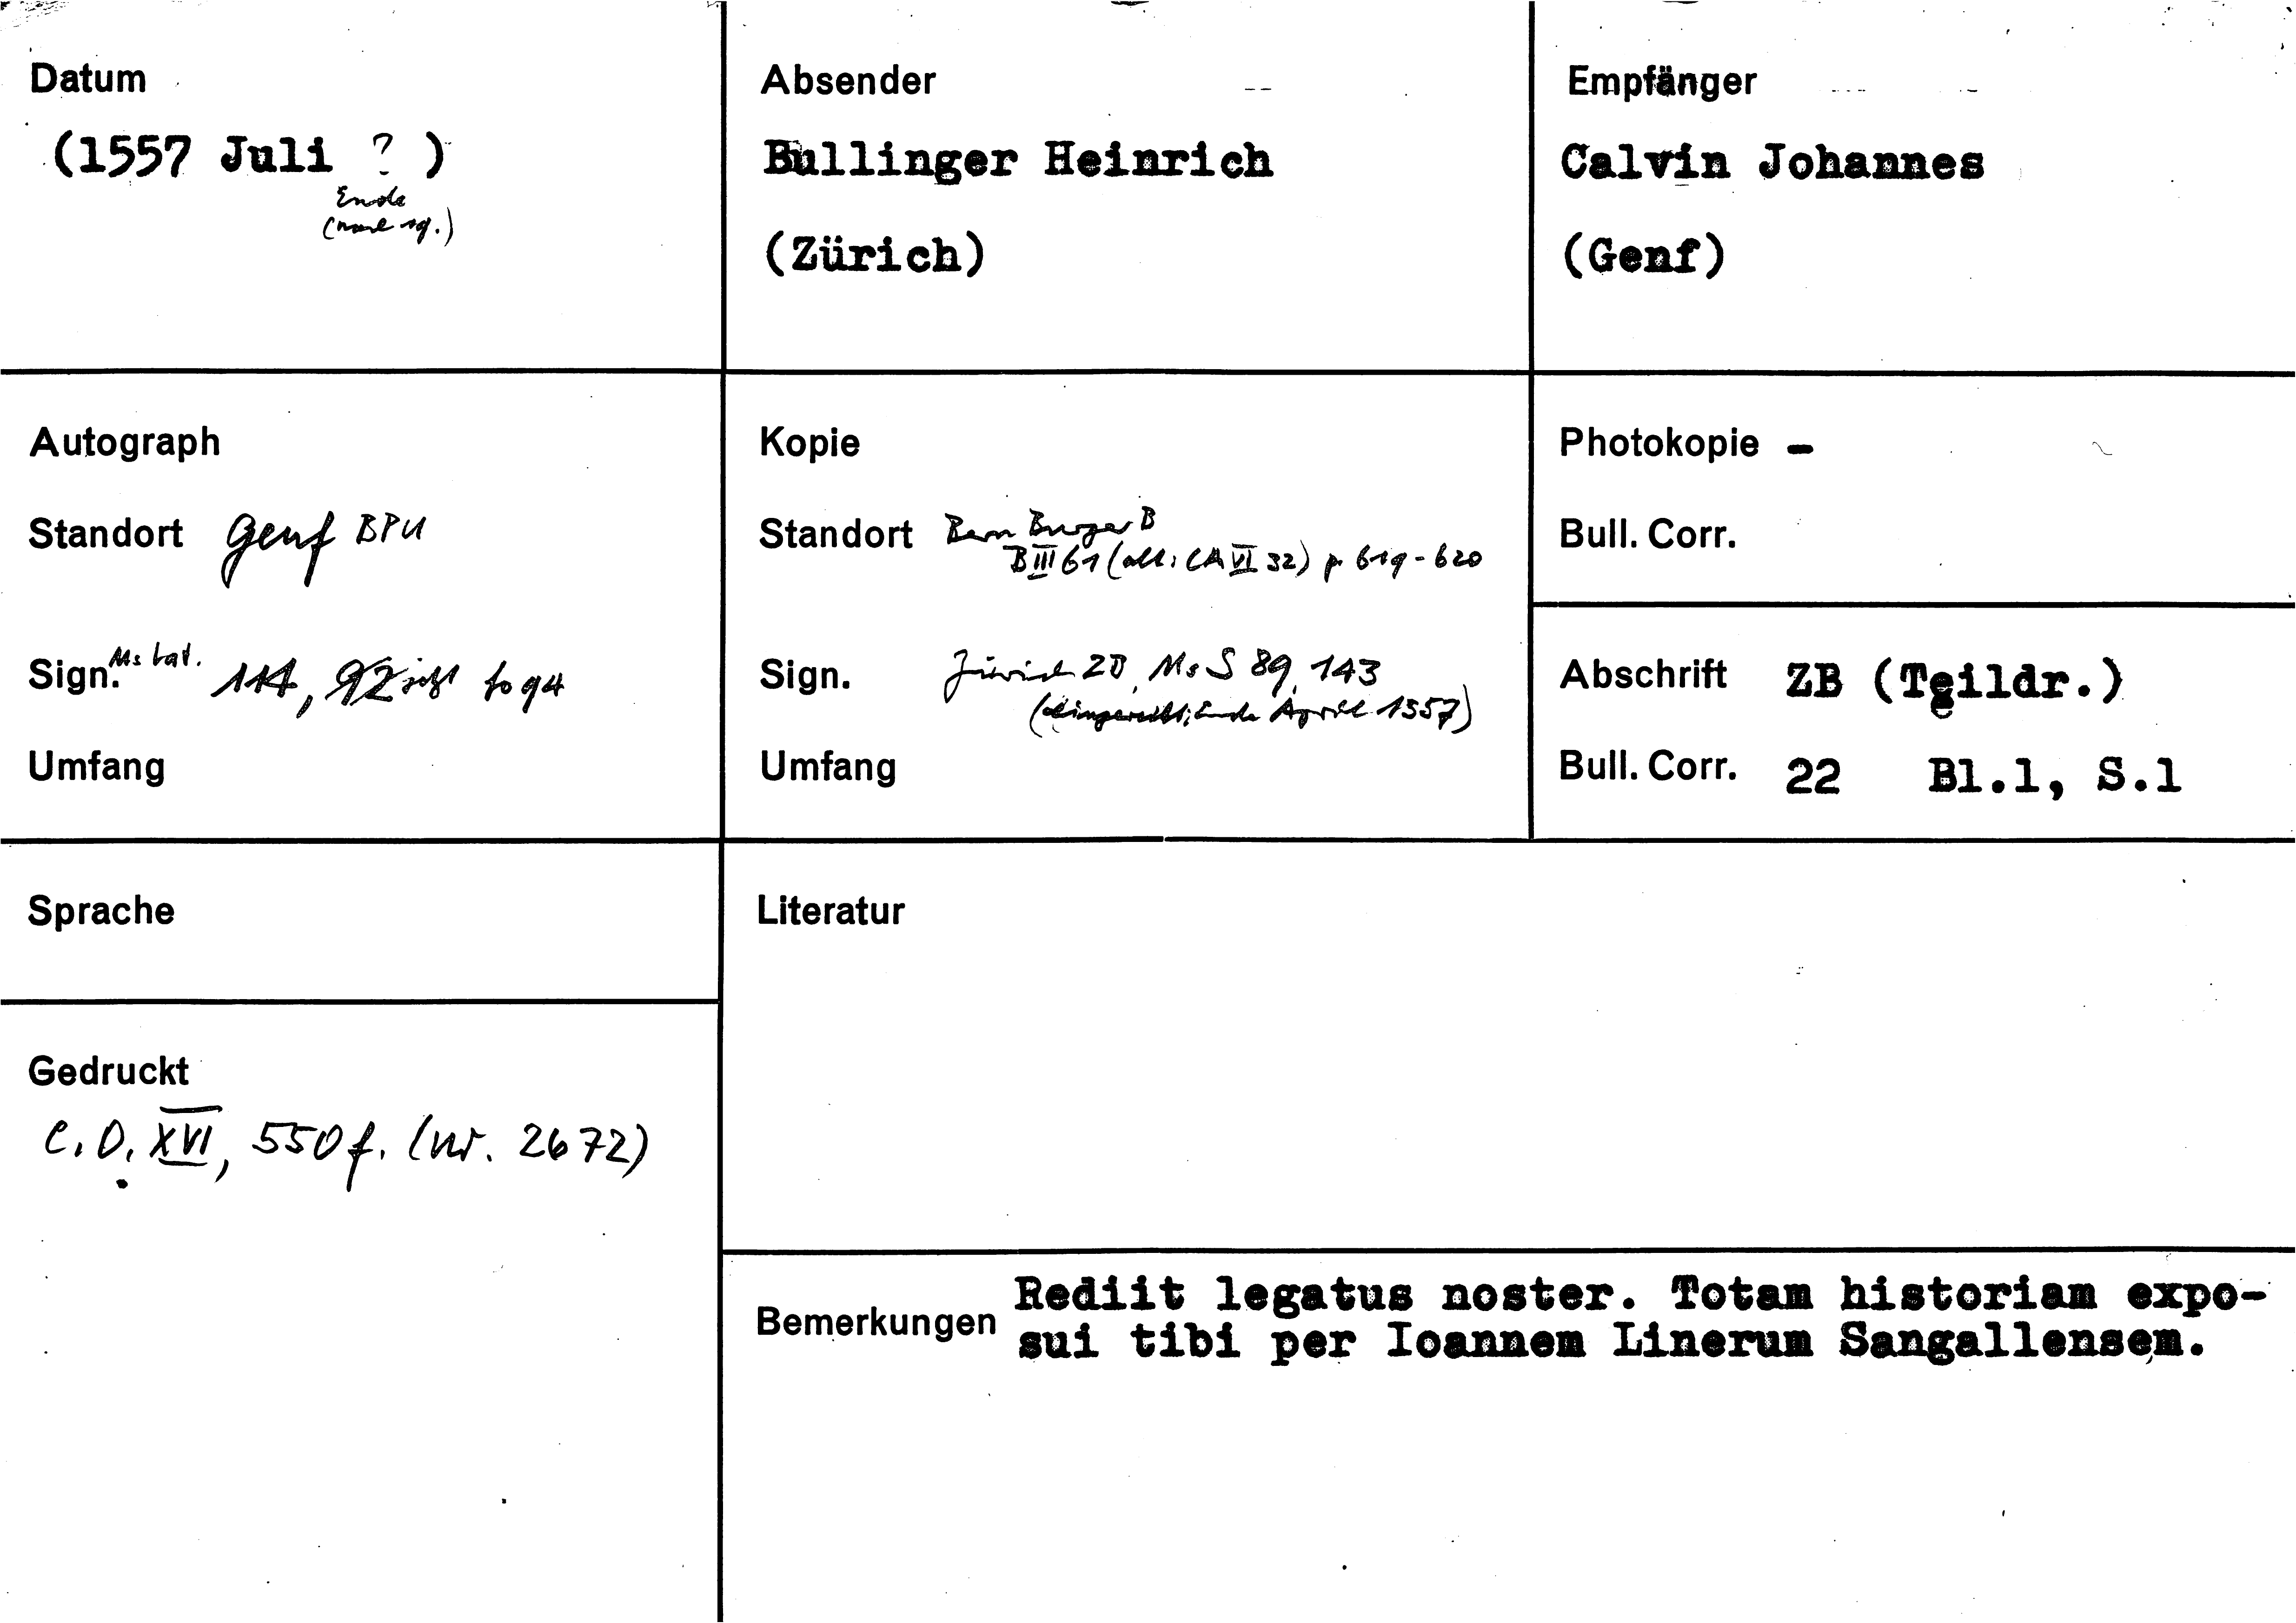 Datum
(1557 Juli ? )
Ende
Absender
Bullinger Heinrich
(Zürich)
Empfänger
Calvin Johannes
(Genf)
Autograph
Standort Genf BPU
Sign. Ms lat. 114, 92 jetzt fo 94
Umfang
Kopie
Standort Bern Burger B
B III 61 (alt: CA VI 32) p. 619-620
Sign. Zürich ZB, Ms S 89, 143
(eingereiht: Ende April 1557)
Umfang
Photokopie -
Bull. Corr.
Abschrift ZB (Teildr.)
Bull. Corr. 22 Bl.1, S.1
Sprache
Gedruckt
C.O. XVI, 550 f. (Nr. 2672)
Literatur
Bemerkungen Rediit legatus noster. Totam historiam expo-
sui tibi per Ioannem Linerum Sangallensem.